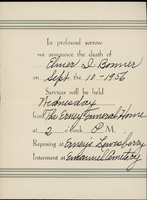 In profound sorrow
we announce the death of
Elmer D. Bonner
on Sept. the 10 - 1956
Services will be held
Wednesday
from The Erney Funeral Home
at 2 o'clock P. M.
Reposing at Erneys Lewisberry
Interment at Emanuel Cemetery